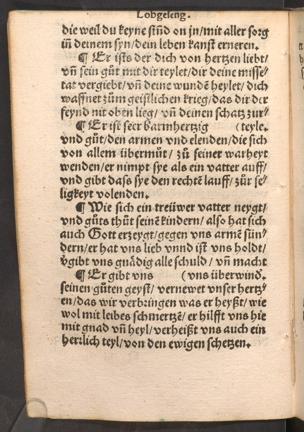 Lobgeseng.
die weil du keyne stūd on jn/mit aller sorg
iñ deinem syn/dein leben kanst erneren.
¶ Er ists der dich von hertzen liebt/
vñ sein gůt mit dir teylet/dir deine misse⸗
tat vergiebt/vñ deine wundē heylet/dich
waffnet zům geistlichen krieg/das dir der
feynd nit oben lieg/ vñ deinen schatz zur⸗
¶ Er ist seer barmhertzig (teyle.
vnd gůt/den armen vnd elenden/die sich
von allem übermůt/ zů seiner warheyt
wenden/er nimpt sye als ein vatter auff/
vnd gibt dass sye den rechtē lauff/zůr se⸗
ligkeyt volenden.
¶ Wie sich ein treüwer vatter neygt/
vnd gůts thůt seinē kindern/ also hat sich
auch Gott erzeygt/gegen vns armē sün⸗
dern/er hat vns lieb vnnd ist vns holdt/
v̈gibt vns gnädig alle schuld/ vñ macht
¶ Er gibt vns (vns überwind̄.
seinen gůten geyst/ vernewet vnser hertz⸗
en/das wir verbringen was er heyßt/wie
wol mit leibes schmertzē/ er hilfft vns hie
mit gnad vñ heyl/verheißt vns auch ein
herrlich teyl/von den ewigen schetzen.